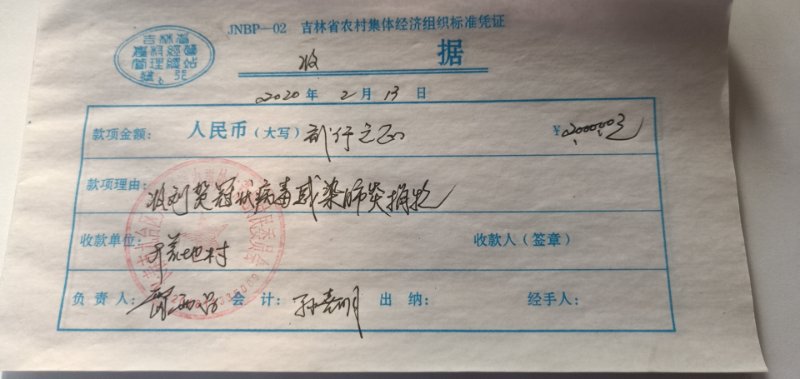 JNBP-02 吉林省农村集体经济组织标准凭证
吉林省
农村经营
管理总站
收 据
2020年 2月 13日
款项金额: 人民币(大写) 贰仟元正 ¥2000.00元
款项理由: 收到 冠状病毒感染肺炎捐款
收款单位: 荒地村 收款人(签章)
负责人: 会计: 出纳: 经手人: